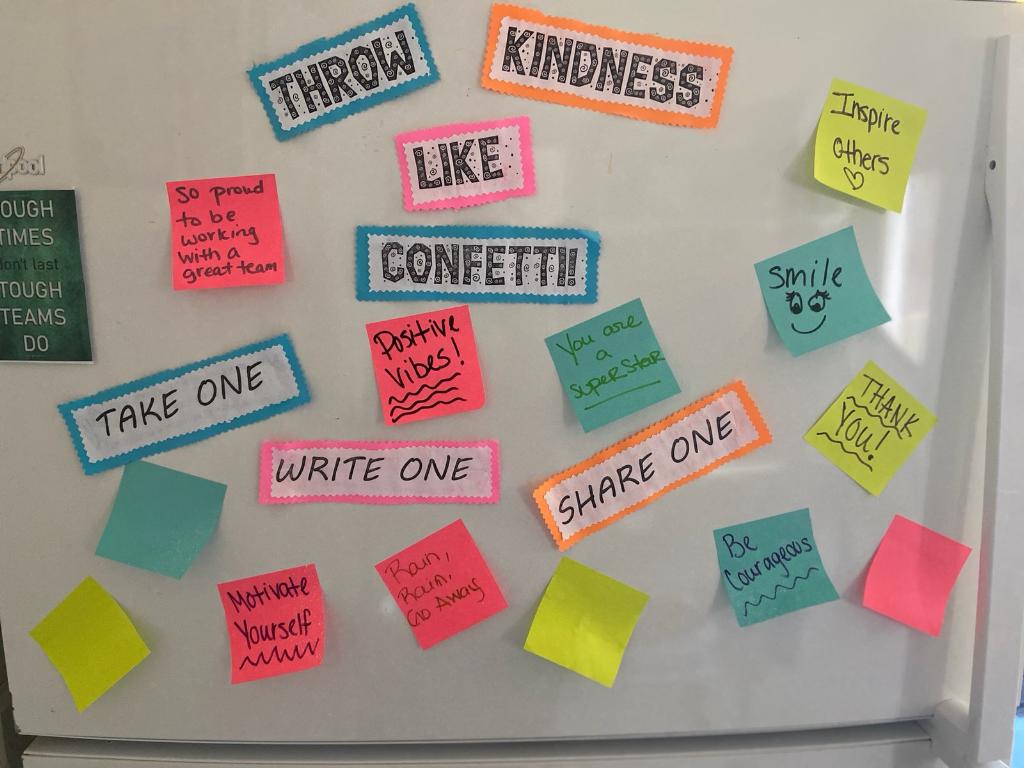 THROW
KINDNESS
LIKE
CONFETTI!
Inspire
others
So proud
to be
working
with a
great team
OUGH
TIMES
don't last
TOUGH
TEAMS
DO
Smile
Positive
Vibes!
You are
a
SuperStar
TAKE ONE
WRITE ONE
SHARE ONE
THANK
YOU!
Be
Courageous
Motivate
Yourself
Rain,
Rain,
Go Away